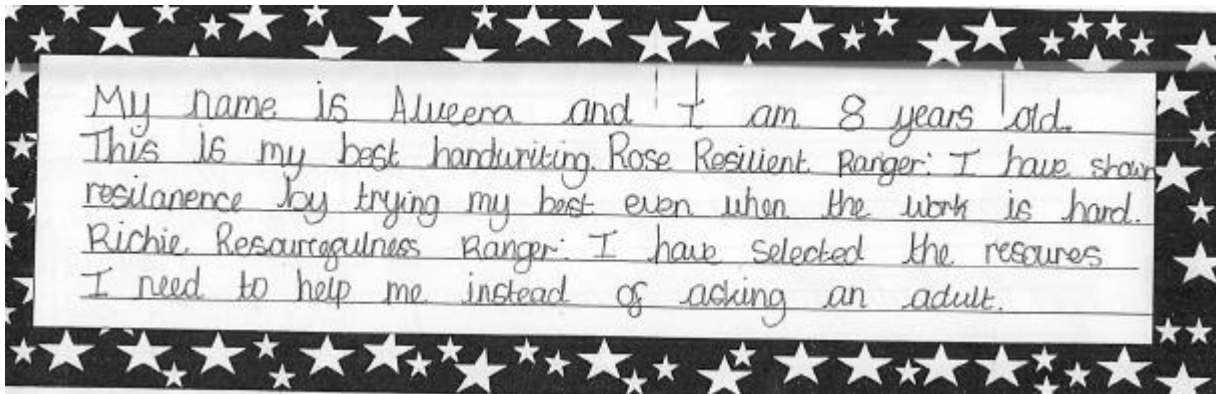 My name is Alweena and I am 8 years old.
This is my best handwriting. Rose Resilient Ranger: I have shown
resilanence by trying my best even when the work is hard.
Richie Resourcegulness Ranger: I have selected the resoures
I need to help me instead of asking an adult.